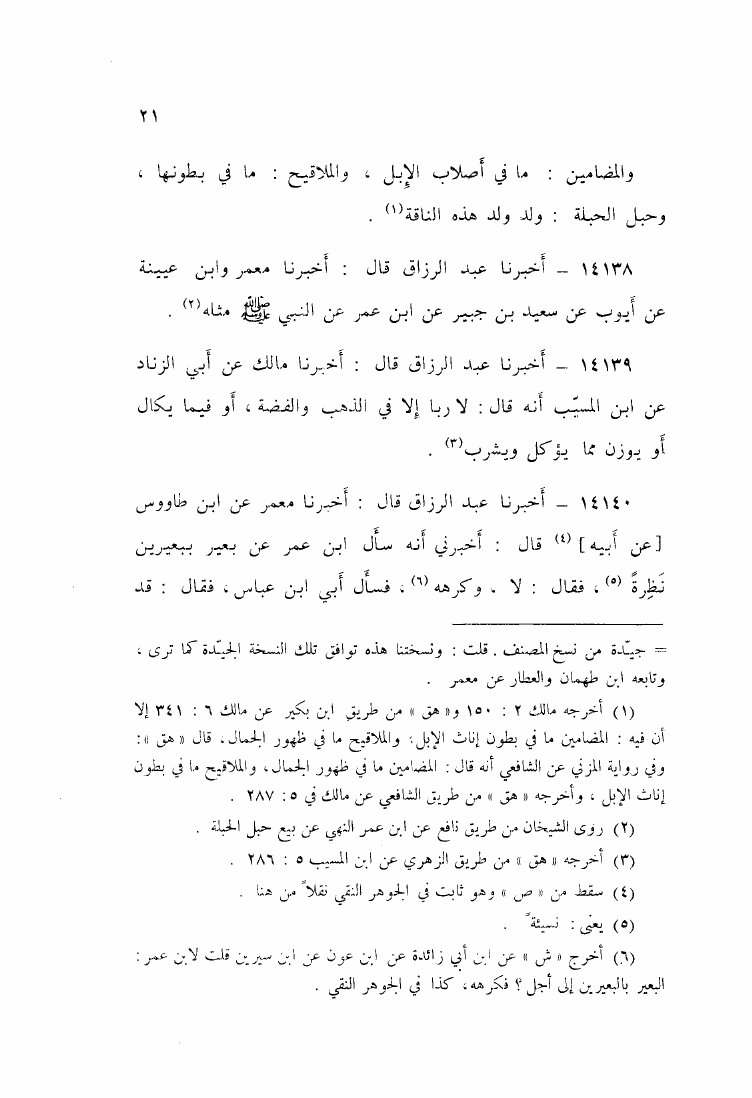 ٢١
والمضامين : ما في أصلاب الإِبل ، والملاقيح : ما في بطونها ،
وحبل الحبلة : ولد ولد هذه الناقة(١) .
١٤١٣٨ – أخبرنا عبد الرزاق قال : أخبرنا معمر وابن عيينة
عن أيوب عن سعيد بن جبير عن ابن عمر عن النبي ﷺ مثله(٢) .
١٤١٣٩ – أخبرنا عبد الرزاق قال : أخبرنا مالك عن أبي الزناد
عن ابن المسيّب أنه قال : لا ربا إلا في الذهب والفضة ، أو فيما يكال
أو يوزن مما يؤكل ويشرب(٣) .
١٤١٤٠ – أخبرنا عبد الرزاق قال : أخبرنا معمر عن ابن طاووس
[عن أبيه] (٤) قال : أخبرني أنه سأل ابن عمر عن بعير ببعيرين
نَظِرةً (٥) ، فقال : لا . وكرهه (٦) ، فسأل أبي ابن عباس ، فقال : قد
= جيّدة من نسخ المصنف . قلت : ونسختنا هذه توافق تلك النسخة الجيّدة كما ترى ،
وتابعه ابن طهمان والعطار عن معمر .
(١) أخرجه مالك ٢ : ١٥٠ و« هق » من طريق ابن بكير عن مالك ٦ : ٣٤١ إلا
أن فيه : المضامين ما في بطون إناث الإبل، والملاقيح ما في ظهور الجمال، قال « هق »:
وفي رواية المزني عن الشافعي أنه قال : المضامين ما في ظهور الجمال، والملاقيح ما في بطون
إناث الإبل ، وأخرجه « هق » من طريق الشافعي عن مالك في ٥ : ٢٨٧ .
(٢) روى الشيخان من طريق نافع عن ابن عمر النهي عن بيع حبل الحبلة .
(٣) أخرجه « هق » من طريق الزهري عن ابن المسيب ٥ : ٢٨٦ .
(٤) سقط من « ص » وهو ثابت في الجوهر النقي نقلاً من هنا .
(٥) يعني : نسيئة ً .
(٦) أخرج « ش » عن ابن أبي زائدة عن ابن عون عن ابن سيرين قلت لابن عمر :
البعير بالبعيرين إلى أجل ؟ فكرهه، كذا في الجوهر النقي .